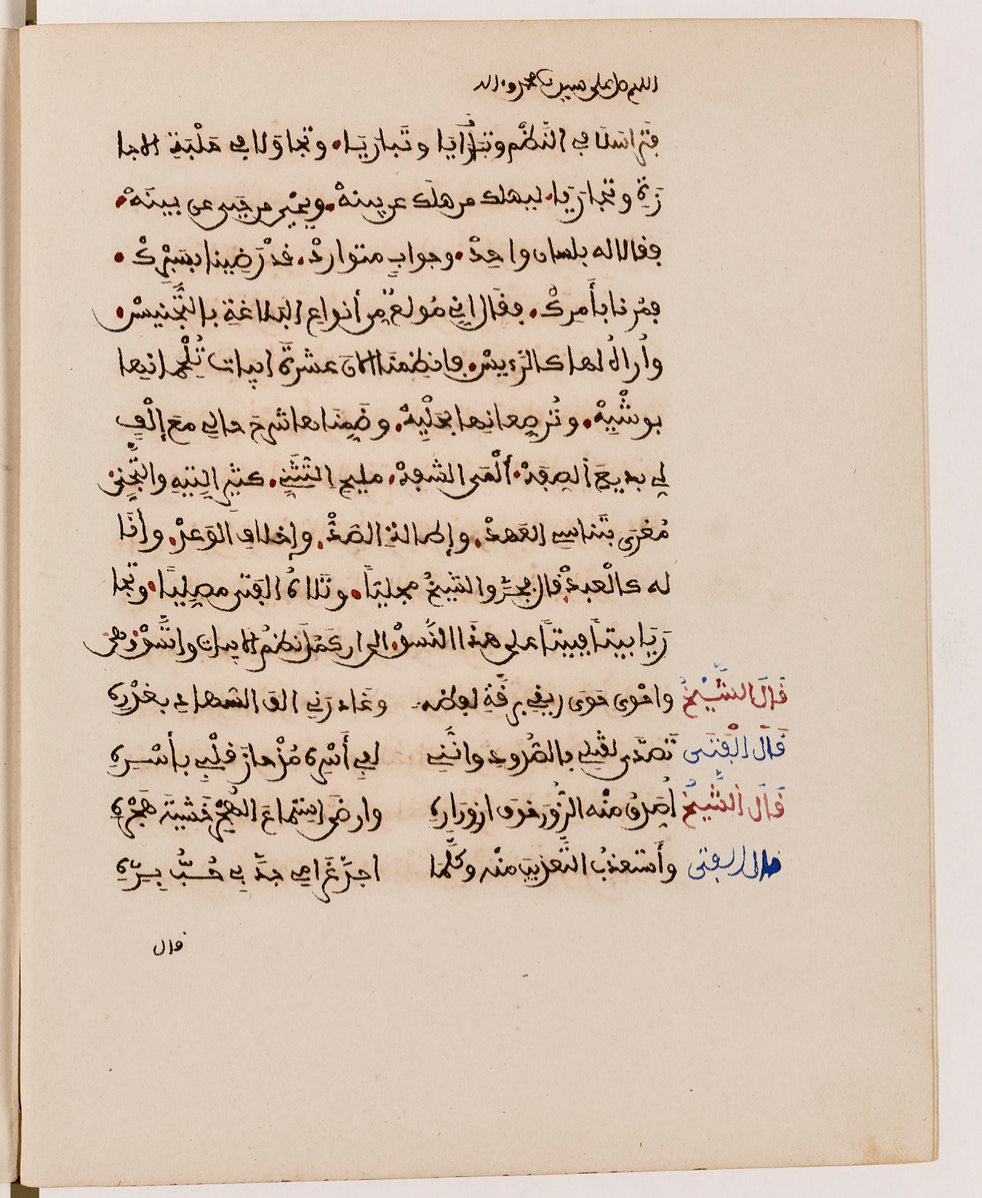 اللهم صل على سيدنا محمد وءاله
فتراسلا في النَّظم وتبارَيا وتَبارَيَا، وتجاوَلا في حَلْبَةِ الاجا
زَةِ وتجارَيَا، ليهلك من هلك عن بينةْ، ويحْيى من حَيى عن بينَةْ،
ففالا له بلسان واحِدْ، وجوابٍ متواردْ، قدْ رَضِينا بسَبْرِكْ،
فمُرنا بأمرِكْ، ففال اني مُولعٌ مِن أنواع البَلاغةِ بالتَّجْنيسْ،
وأراهُ لها كالرَّءيسْ، فانظِمَا الانَ عشرَةَ ابيات تُلْحمانها
بوشْيِهْ، وتُرصعانها بحَلْيِهْ، وضَمِّنَاها شرحَ حالي مَعَ إلْفٍ
لي بديعِ الصِفَةْ، ألْمَى الشفةْ، مليح التَّثَنِّي، كثيرِ التِيهِ والتَّجَنِّي،
مُغرًى بتَناسِي العَهدْ، وإطالةِ الصَّدْ، وإخلافِ الوَعدْ، وأنَا
له كالعبدْ، فال فبَرَزَ الشَّيخُ مجليَاً، وتَلاهُ الفَتى مصليَاً، وتجا
رَيَا بيتاً فبيتاً على هذا النَّسَوْ، الى ان كَمُلَ نظمُ الابيات واتَّسَقْ، وهي
فَالَ الشَّيْخُ وأحْوى حَوى رِفي برِفَّةِ لعظه وغَادرَني الف السُّهادِ بغَدْرِهِ
فَالَ الْفَتَى تَصدَّى لقتلِي بالصُّدودِ وانَّنِي لفِي أَسْرِهِ مُذْ حازَ فلْبِي بأسْرِهِ
فَالَ الشَّيْخُ أُصَدِّقُ مِنْه الزُّورَ خوفَ ازوِرارِهِ وأرضَى استماعَ الهُجْرِ خَشْيَةَ هَجْرِهِ
فال الفتى وأستعذبُ التَّعذيبَ مِنْه وكُلَّمَا أجدَّ عَذابِي جَدَّ بِي حُبُّ بِرِّهِ
فال